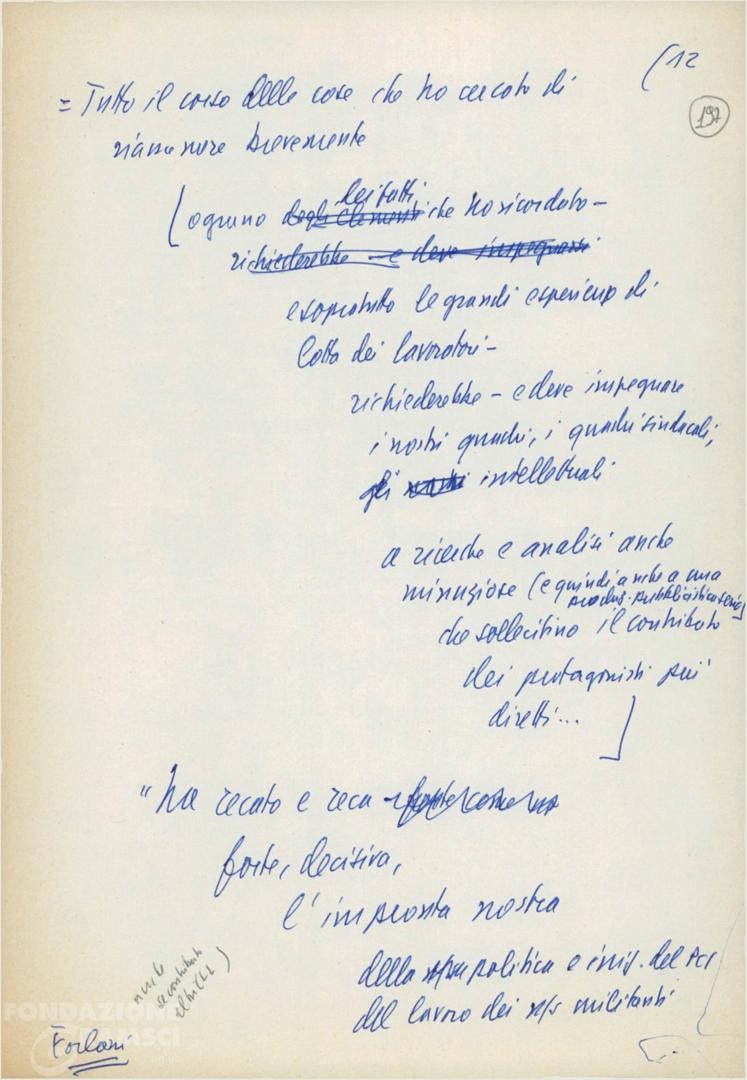 (12
197
= Tutto il corso delle cose che ho cercato di
riassumere brevemente
[ognuno degli elementi dei fatti che ho ricordato –
richiederebbe – e deve impegnarsi
e soprattutto le grandi esperienze di
lotta dei lavoratori –
richiederebbe – e deve impegnare
i nostri quadri, i quadri sindacali,
gli nostri intellettuali
a ricerche e analisi anche
minuziose (e quindi anche a una
produz. pubblicistica seria)
che sollecitino il contributo
dei protagonisti più
diretti...]
"ha recato e reca
forte, decisiva,
l'impronta nostra
della politica e iniz. del PCI
del lavoro dei ns/ militanti
FONDAZIONE
GRAMSCI
Forlani